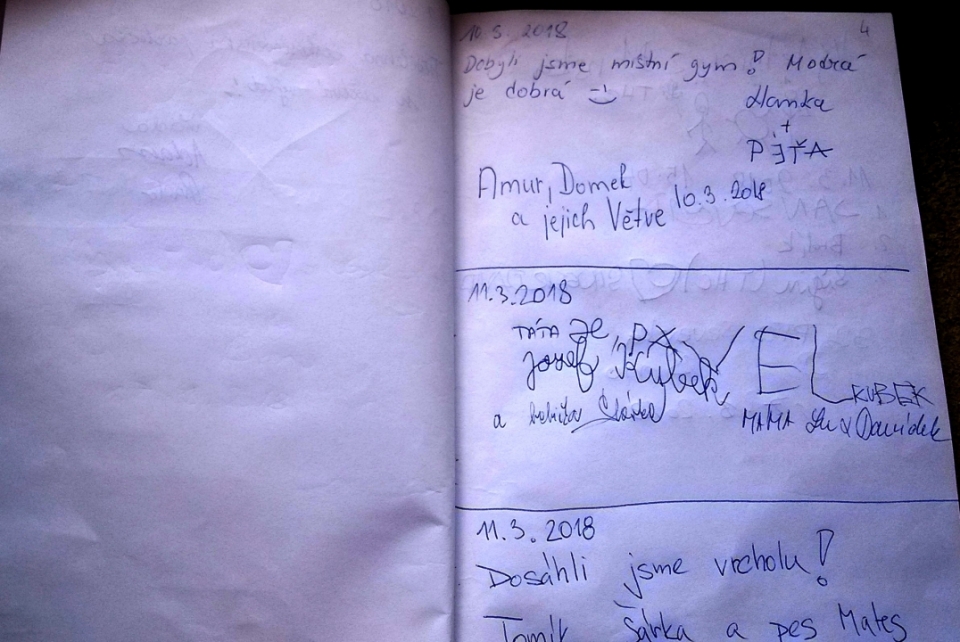 10.3.2018 4
Dobyli jsme místní gym! Modrá
je dobrá :-)
Hanka
+
PÉŤA
Amur, Domek
a jejich Větve 10.3.2018
11.3.2018
TÁTA JE PAVEL KUBEK
Josef Kubek
a
MAMA Davídek
11.3.2018
Dosáhli jsme vrcholu!
Tomík Šárka a pes Mates